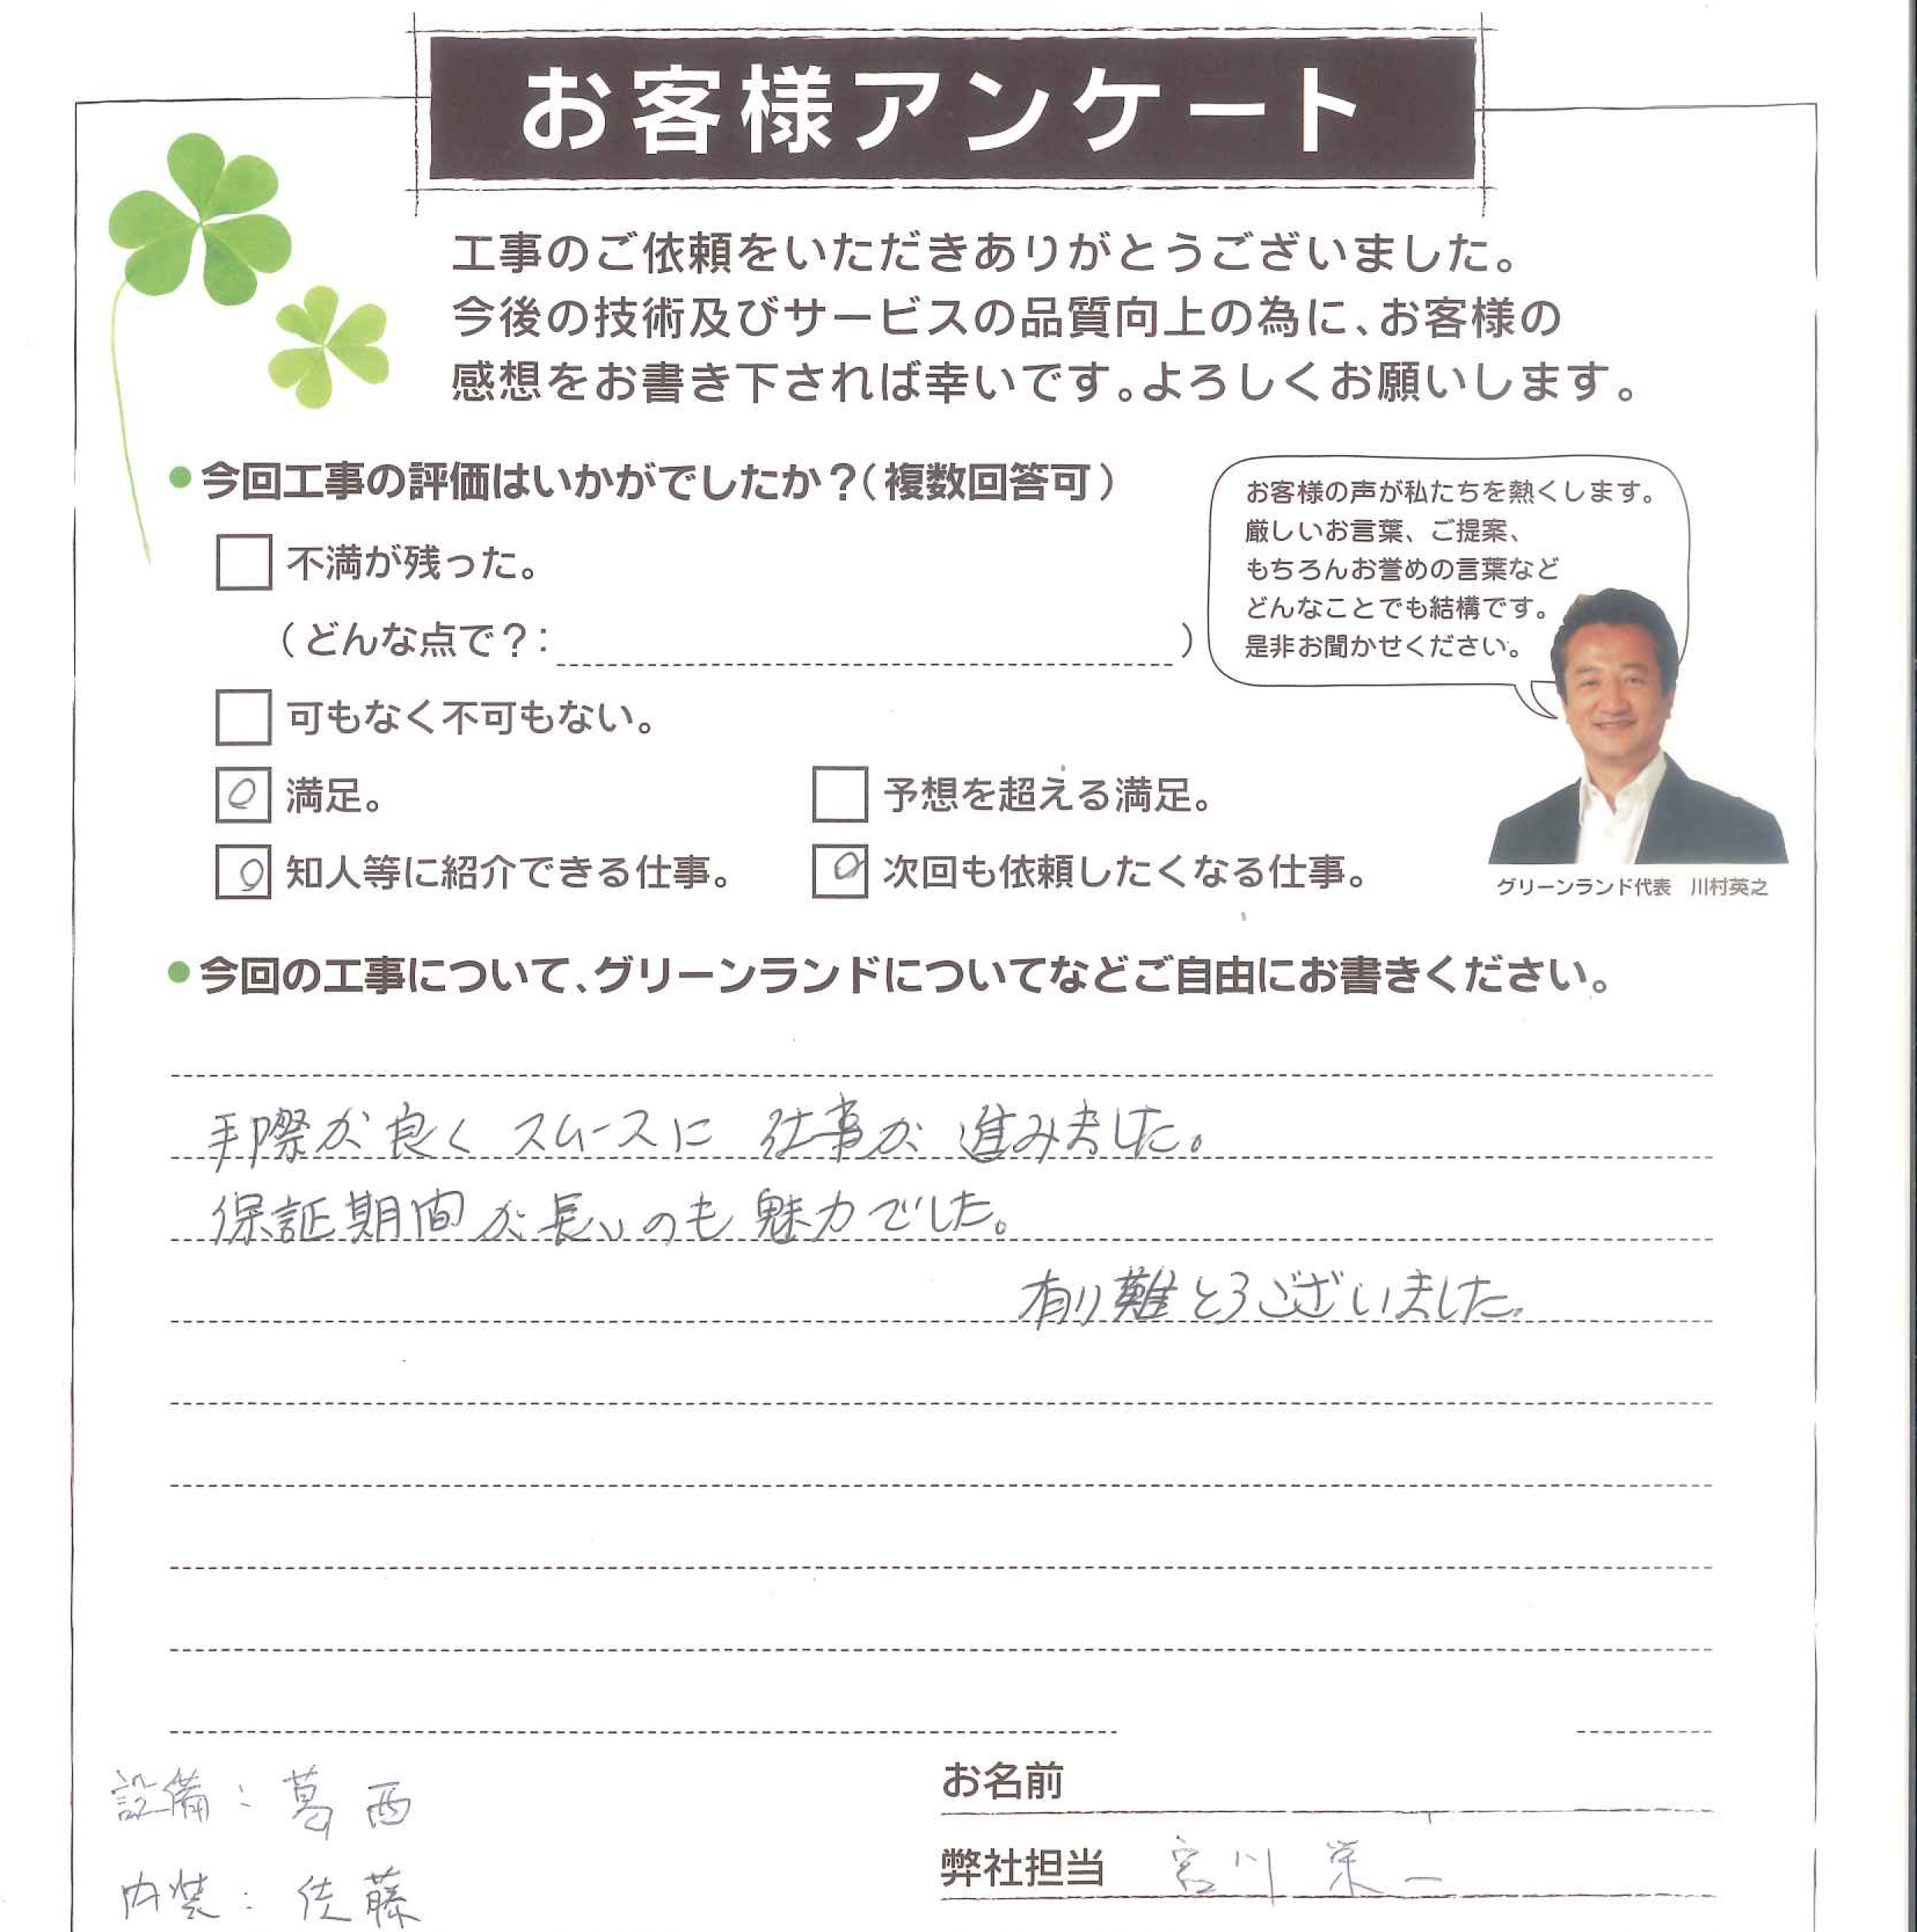 お客様アンケート
工事のご依頼をいただきありがとうございました。
今後の技術及びサービスの品質向上の為に、お客様の
感想をお書き下されば幸いです。よろしくお願いします。
●今回工事の評価はいかがでしたか？(複数回答可)
不満が残った。
(どんな点で？: )
可もなく不可もない。
○ 満足。 予想を超える満足。
○ 知人等に紹介できる仕事。 ○ 次回も依頼したくなる仕事。
お客様の声が私たちを熱くします。
厳しいお言葉、ご提案、
もちろんお誉めの言葉など
どんなことでも結構です。
是非お聞かせください。
グリーンランド代表 川村英之
●今回の工事について、グリーンランドについてなどご自由にお書きください。
手際が良く スムースに 仕事が 進みました。
保証期間が長いのも 魅力でした。
有り難とうございました。
設備：葛西
内装：佐藤
お名前
弊社担当 宮川 栄一